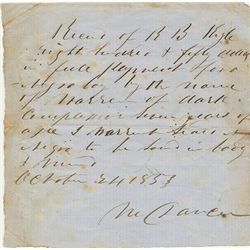 Recd of R B Kyle
eight hundred & fifty dollars
in full payment for a
Negro boy by the name
of Warren of dark
Complexion Seven years of
age I warrant
Negro to be sound in body
& mind
October 24 1853